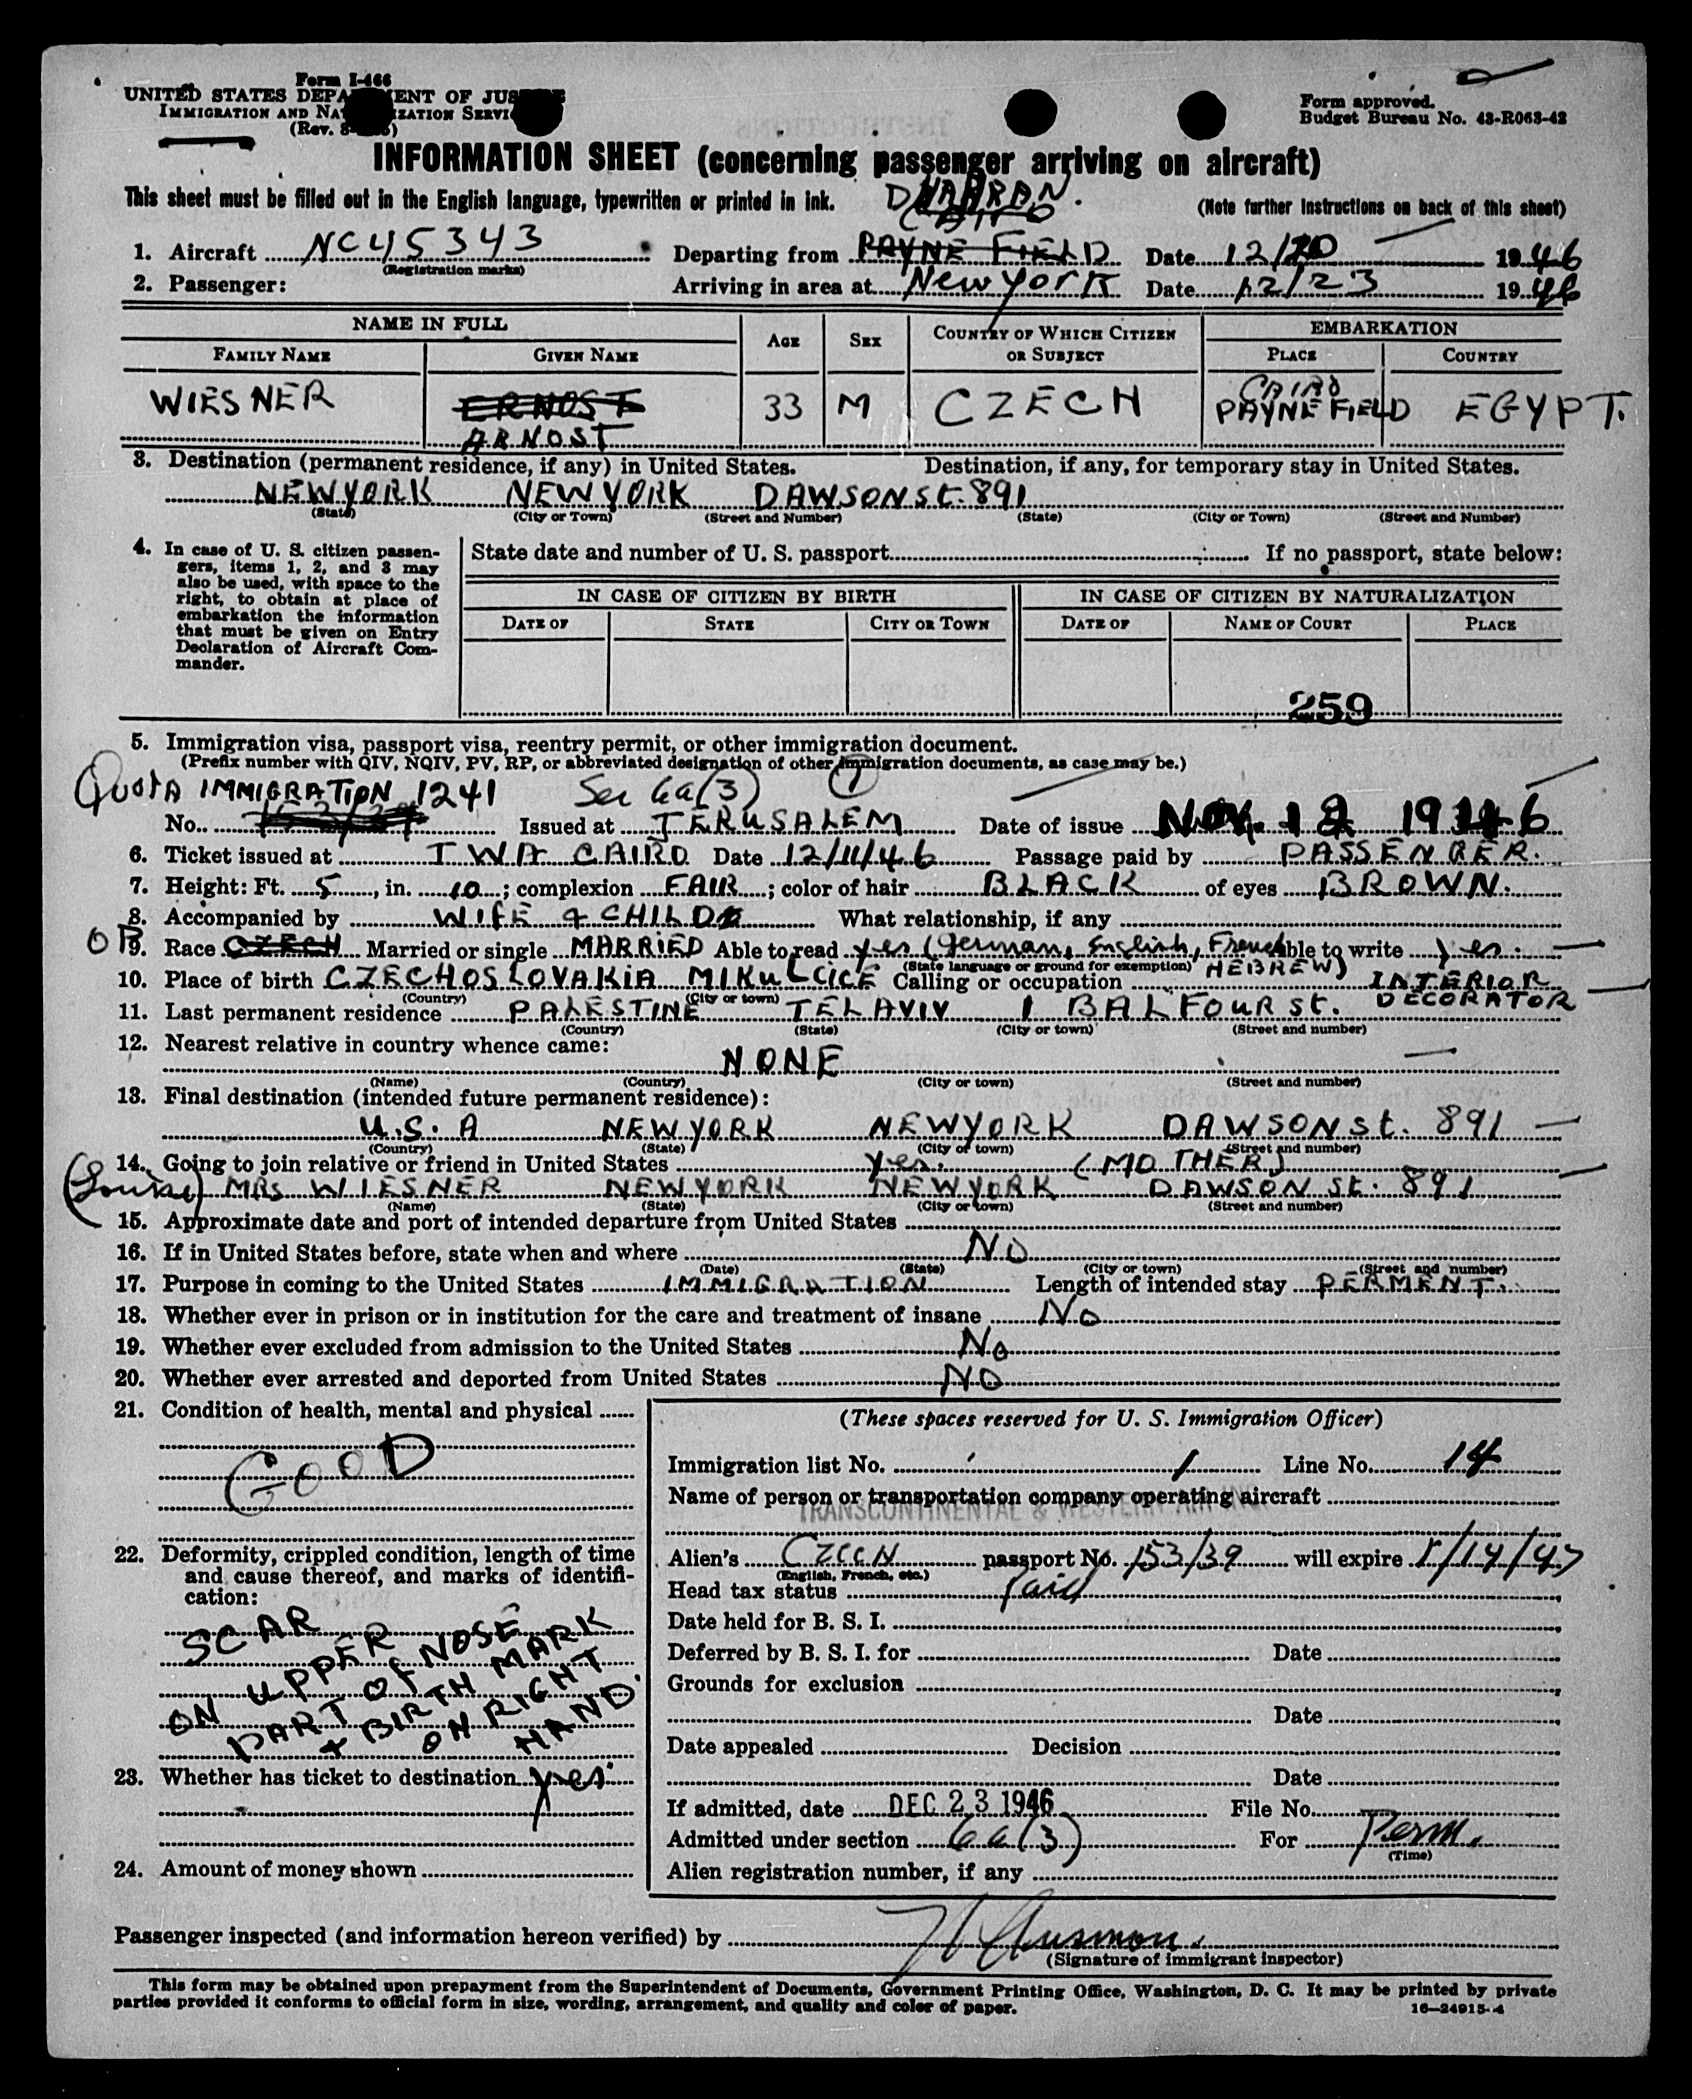 Form I-466
UNITED STATES DEPA ENT OF JUS
IMMIGRATION AND NA IZATION SERVI
(Rev. 8- )
Form approved.
Budget Bureau No. 43-R063-42
INFORMATION SHEET (concerning passenger arriving on aircraft)
This sheet must be filled out in the English language, typewritten or printed in ink.
(Note further instructions on back of this sheet)
DHAHRAN.
CAIRO
1. Aircraft NC45343 Departing from PAYNE FIELD Date 12/20 1946
(Registration marks)
2. Passenger: Arriving in area at New York Date 12/23 1946
NAME IN FULL
FAMILY NAME GIVEN NAME AGE SEX COUNTRY OF WHICH CITIZEN OR SUBJECT EMBARKATION
PLACE COUNTRY
WIESNER ERNOST 33 M CZECH CAIRO PAYNE FIELD EGYPT.
ARNOST
3. Destination (permanent residence, if any) in United States. Destination, if any, for temporary stay in United States.
NEW YORK NEW YORK DAWSON St. 891
(State) (City or Town) (Street and Number) (State) (City or Town) (Street and Number)
4. In case of U. S. citizen passen-
gers, items 1, 2, and 3 may
also be used, with space to the
right, to obtain at place of
embarkation the information
that must be given on Entry
Declaration of Aircraft Com-
mander.
State date and number of U. S. passport If no passport, state below:
IN CASE OF CITIZEN BY BIRTH IN CASE OF CITIZEN BY NATURALIZATION
DATE OF STATE CITY OR TOWN DATE OF NAME OF COURT PLACE
259
5. Immigration visa, passport visa, reentry permit, or other immigration document.
(Prefix number with QIV, NQIV, PV, RP, or abbreviated designation of other immigration documents, as case may be.)
Quota IMMIGRATION 1241 Sec 6a(3) 1
No. 153/39 Issued at JERUSALEM Date of issue NOV. 12 1946
6. Ticket issued at TWA CAIRO Date 12/11/46 Passage paid by PASSENGER.
7. Height: Ft. 5, in. 10; complexion FAIR; color of hair BLACK of eyes BROWN.
8. Accompanied by WIFE & CHILD What relationship, if any
9. Race CZECH Married or single MARRIED Able to read yes (German, English, French Able to write yes.
(State language or ground for exemption) HEBREW)
10. Place of birth CZECHOSLOVAKIA MIKULCICE Calling or occupation INTERIOR
(Country) (City or town) DECORATOR
11. Last permanent residence PALESTINE TEL AVIV 1 BALFOUR St.
(Country) (State) (City or town) (Street and number)
12. Nearest relative in country whence came:
NONE
(Name) (Country) (City or town) (Street and number)
13. Final destination (intended future permanent residence):
U.S.A NEW YORK NEW YORK DAWSON St. 891
(Country) (State) (City or town) (Street and number)
14. Going to join relative or friend in United States Yes. (MOTHER)
(Louise) MRS WIESNER NEW YORK NEW YORK DAWSON St. 891
(Name) (State) (City or town) (Street and number)
15. Approximate date and port of intended departure from United States
16. If in United States before, state when and where NO
(Date) (State) (City or town) (Street and number)
17. Purpose in coming to the United States IMMIGRATION Length of intended stay PERMENT.
18. Whether ever in prison or in institution for the care and treatment of insane No
19. Whether ever excluded from admission to the United States No
20. Whether ever arrested and deported from United States NO
21. Condition of health, mental and physical
GOOD
22. Deformity, crippled condition, length of time
and cause thereof, and marks of identifi-
cation:
SCAR
ON UPPER
PART OF NOSE
+ BIRTH MARK
ON RIGHT
HAND.
23. Whether has ticket to destination yes.
24. Amount of money shown
(These spaces reserved for U. S. Immigration Officer)
Immigration list No. 1 Line No. 14
Name of person or transportation company operating aircraft
TRANSCONTINENTAL & WESTERN AIR INC
Alien's Czech passport No. 153/39 will expire 1/14/47
(English, French, etc.)
Head tax status Paid
Date held for B. S. I.
Deferred by B. S. I. for Date
Grounds for exclusion
Date
Date appealed Decision
Date
If admitted, date DEC 23 1946 File No.
Admitted under section 6a(3) For Perm.
(Time)
Alien registration number, if any
Passenger inspected (and information hereon verified) by
(Signature of immigrant inspector)
This form may be obtained upon prepayment from the Superintendent of Documents, Government Printing Office, Washington, D. C. It may be printed by private
parties provided it conforms to official form in size, wording, arrangement, and quality and color of paper.
16—24915-4